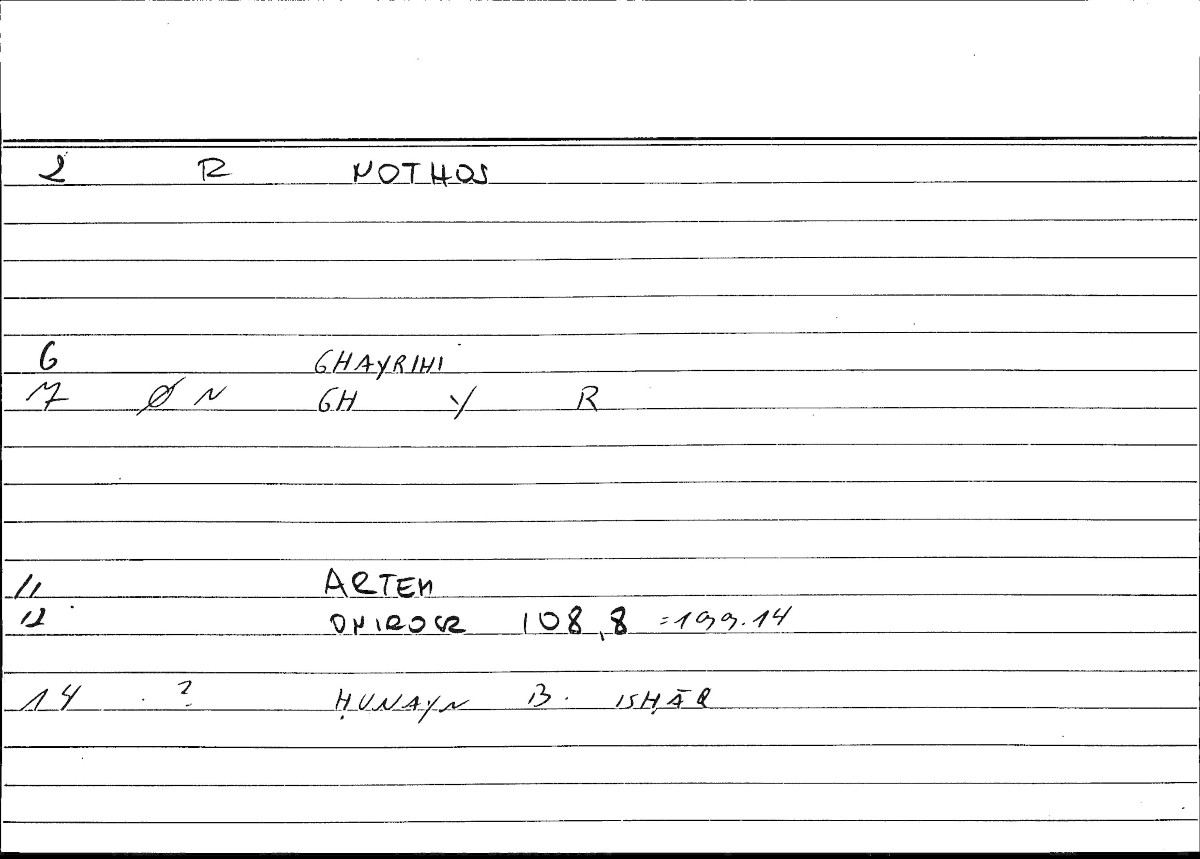 2 R NOTHOS
6 GHAYRIHI
7 Ø N GH Y R
11 ARTEM
12 ONIROCR 108,8 =199.14
14 ? ḤUNAYN B. ISḤĀQ